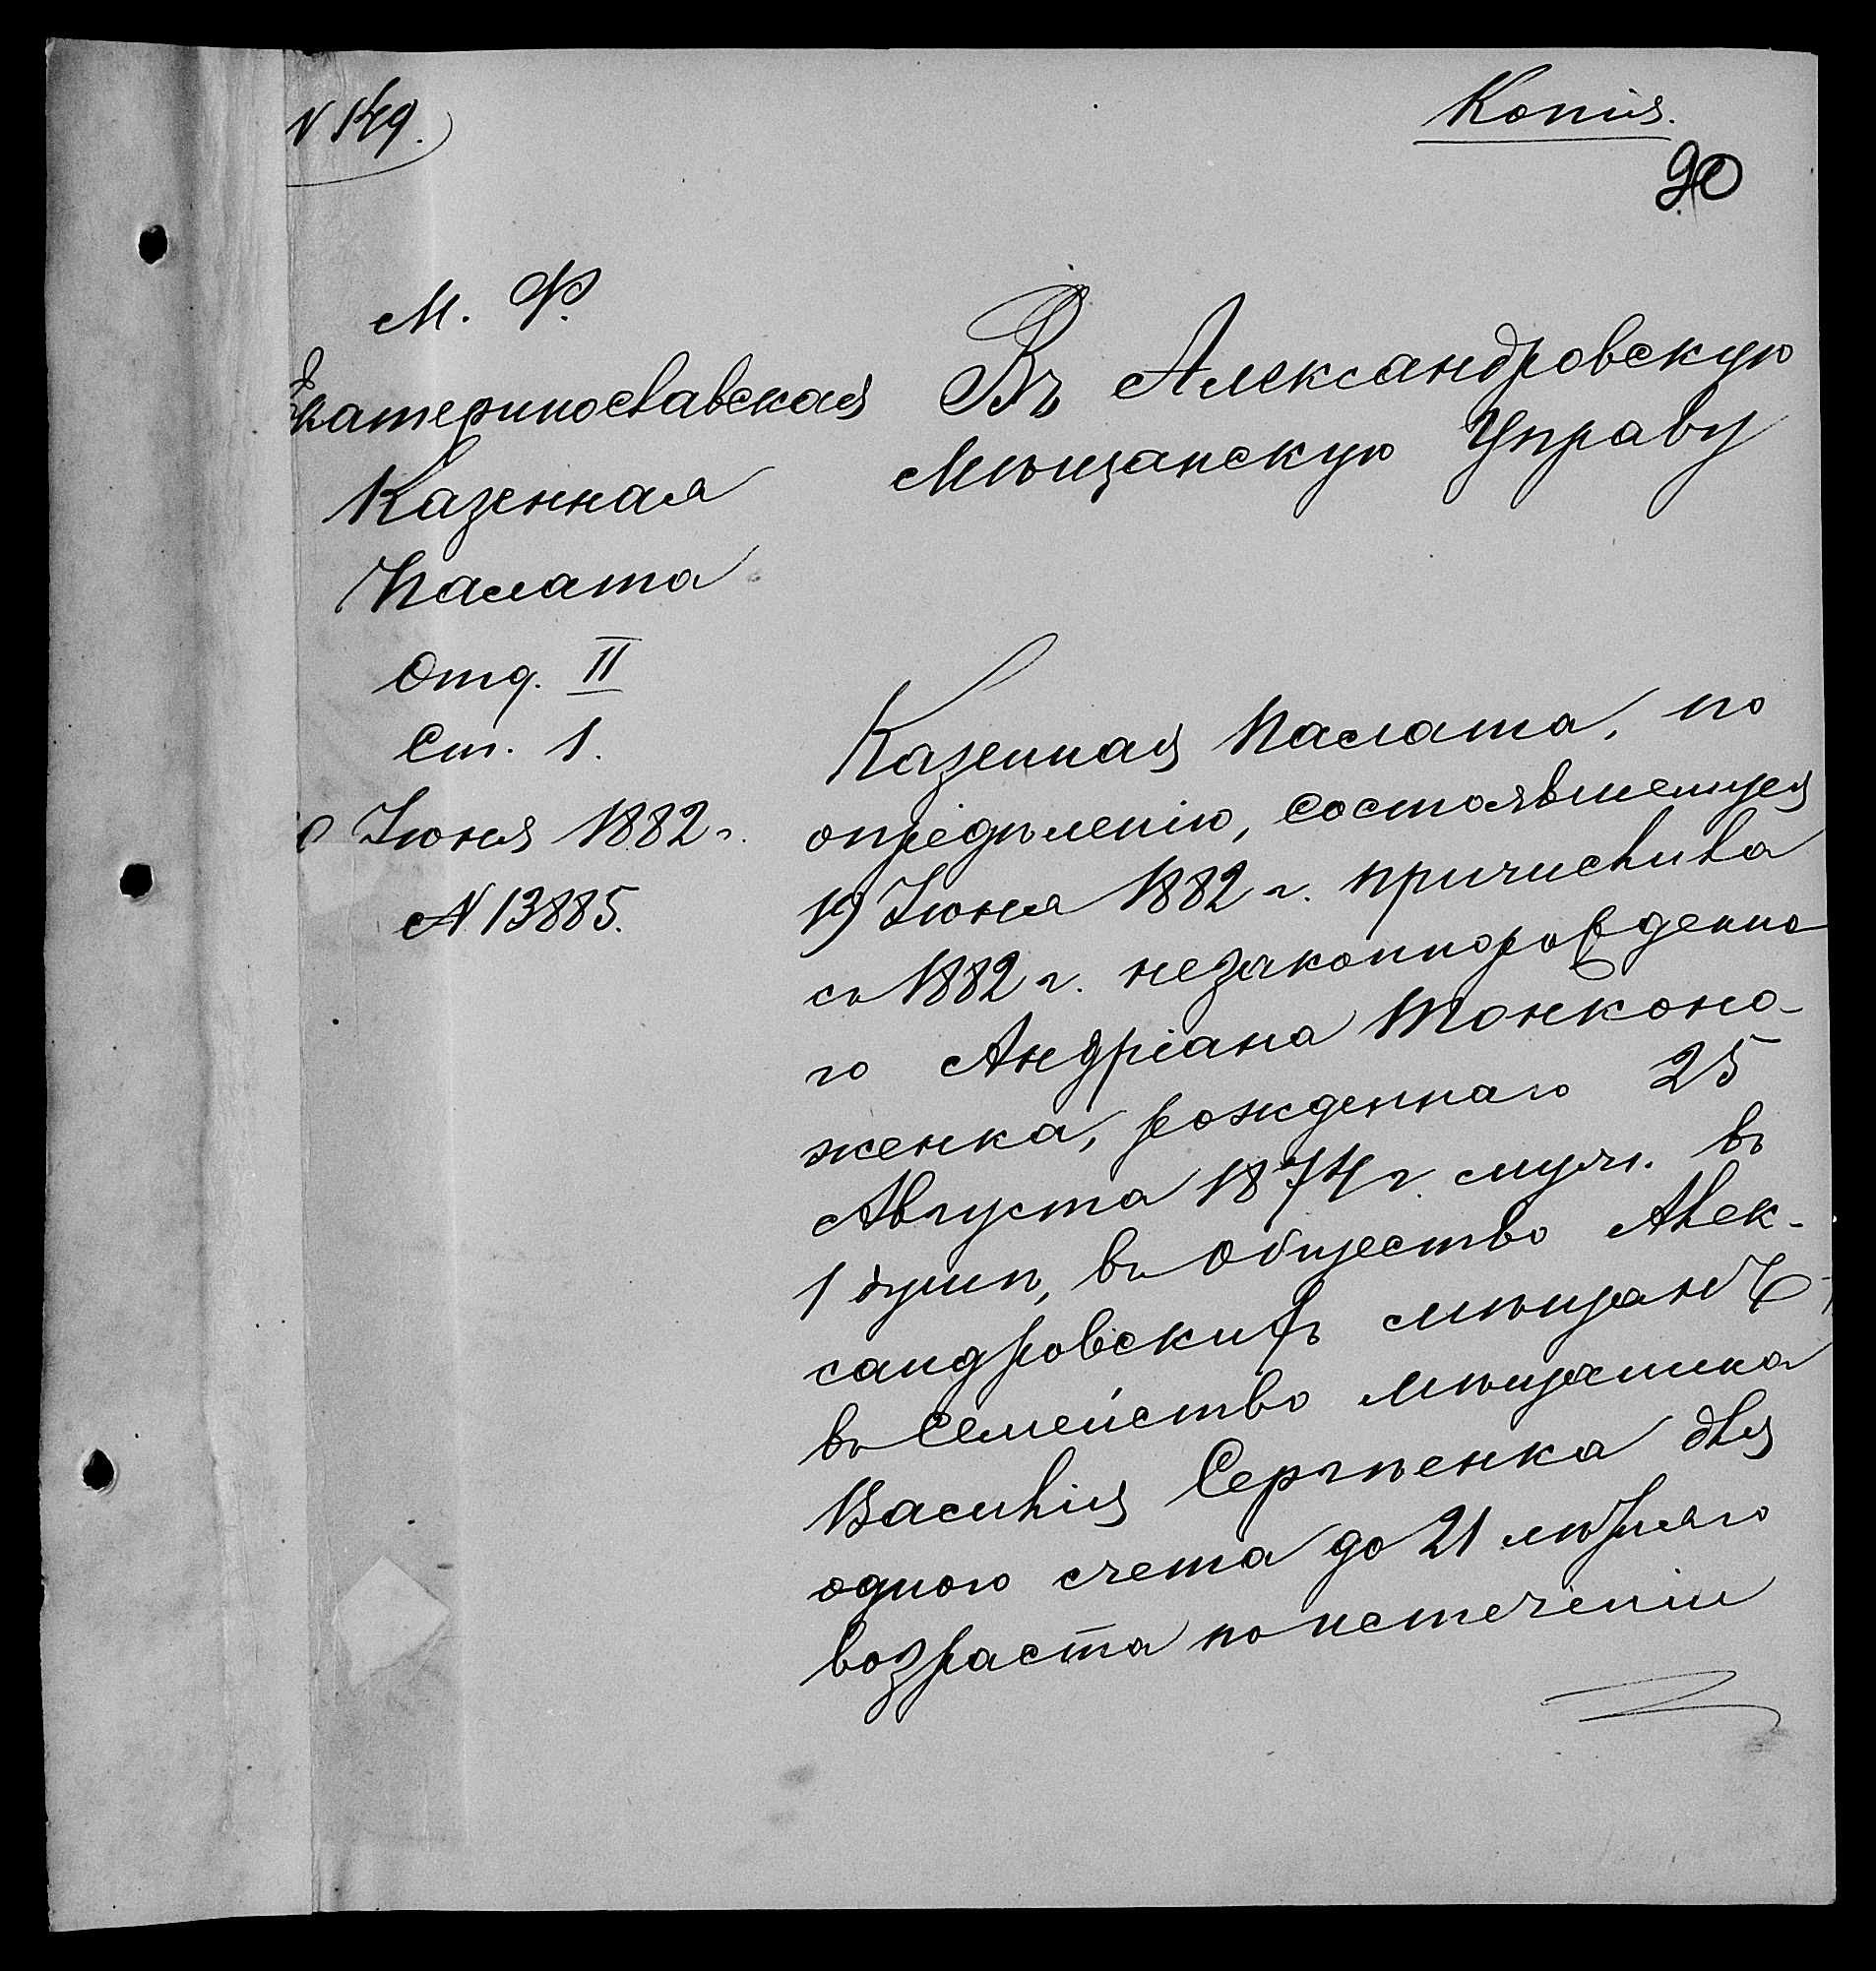 N 149.
Копія.
90
М. Ф.
Екатеринославская
Казенная
Палата
Отд. II
Ст. 1.
Іюня 1882 г.
N 13885.
Въ Александровскую
Мѣщанскую Управу
Казенная Палата, по
опредѣленію, состоявшемуся
19 Іюня 1882 г. причислила
съ 1882 г. незаконнорожденна
го Андріана Тонконо-
женка, рожденнаго 25
Августа 1874 г. муж. въ
1 душѣ, въ общество Алек-
сандровскихъ мѣщанъ
въ семейство мѣщанина
Василія Сергѣенка для
одного счета до 21 лѣтняго
возраста по истеченіи